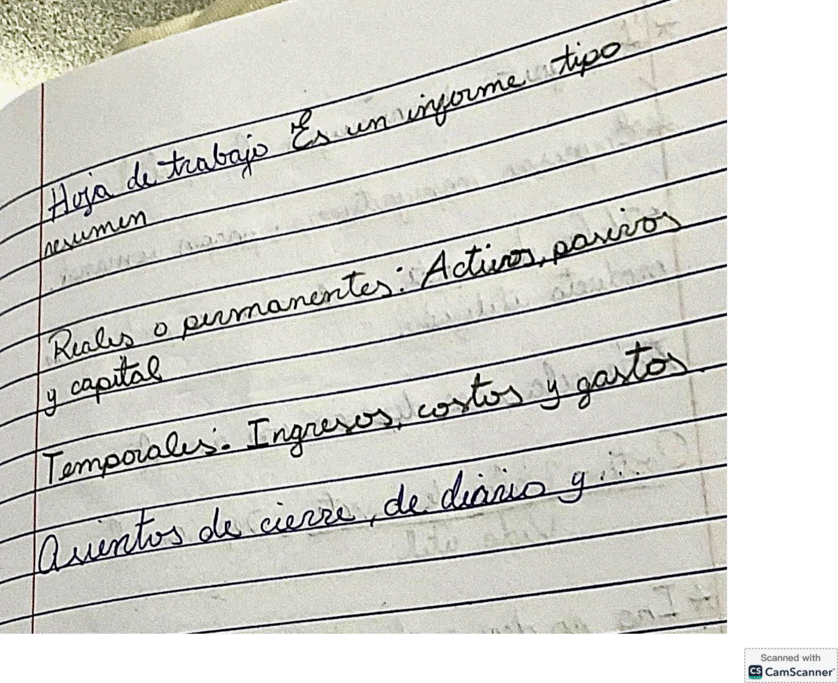 Hoja de trabajo Es un informe tipo
resumen
Reales o permanentes: Activos, pasivos
y capital
Temporales: Ingresos, costos y gastos
Asientos de cierre, de diario y ...
Scanned with
CS CamScanner